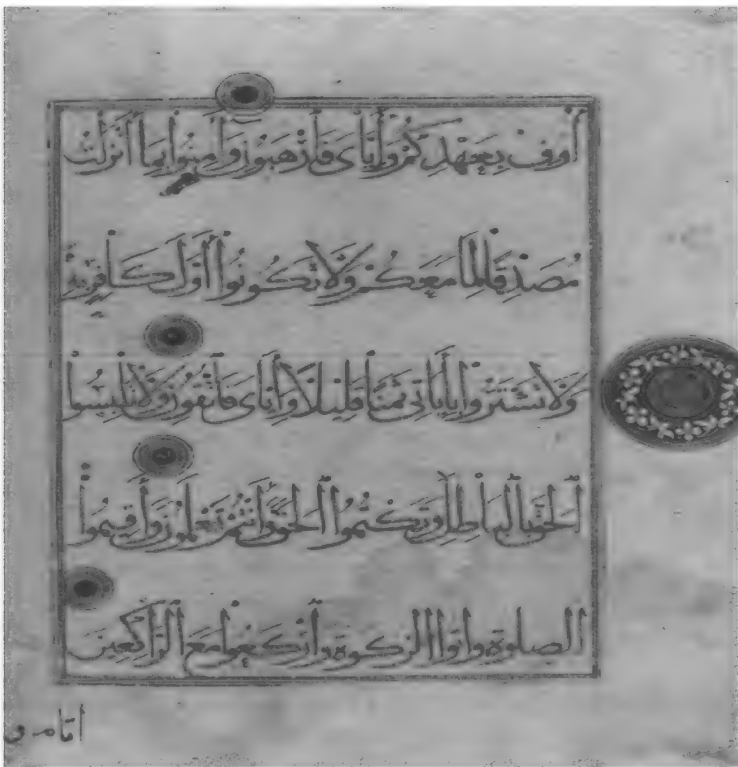 أُوفِ بِعَهْدِكُمْ وَإِيَّايَ فَارْهَبُونِ وَآمِنُوا بِمَا أَنْزَلْتُ
مُصَدِّقًا لِمَا مَعَكُمْ وَلَا تَكُونُوا أَوَّلَ كَافِرٍ بِهِ
وَلَا تَشْتَرُوا بِآيَاتِي ثَمَنًا قَلِيلًا وَإِيَّايَ فَاتَّقُونِ وَلَا تَلْبِسُوا
الْحَقَّ بِالْبَاطِلِ وَتَكْتُمُوا الْحَقَّ وَأَنْتُمْ تَعْلَمُونَ وَأَقِيمُوا
الصَّلٰوةَ وَآتُوا الزَّكٰوةَ وَارْكَعُوا مَعَ الرَّاكِعِينَ